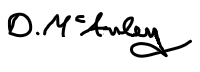 D. McAuley